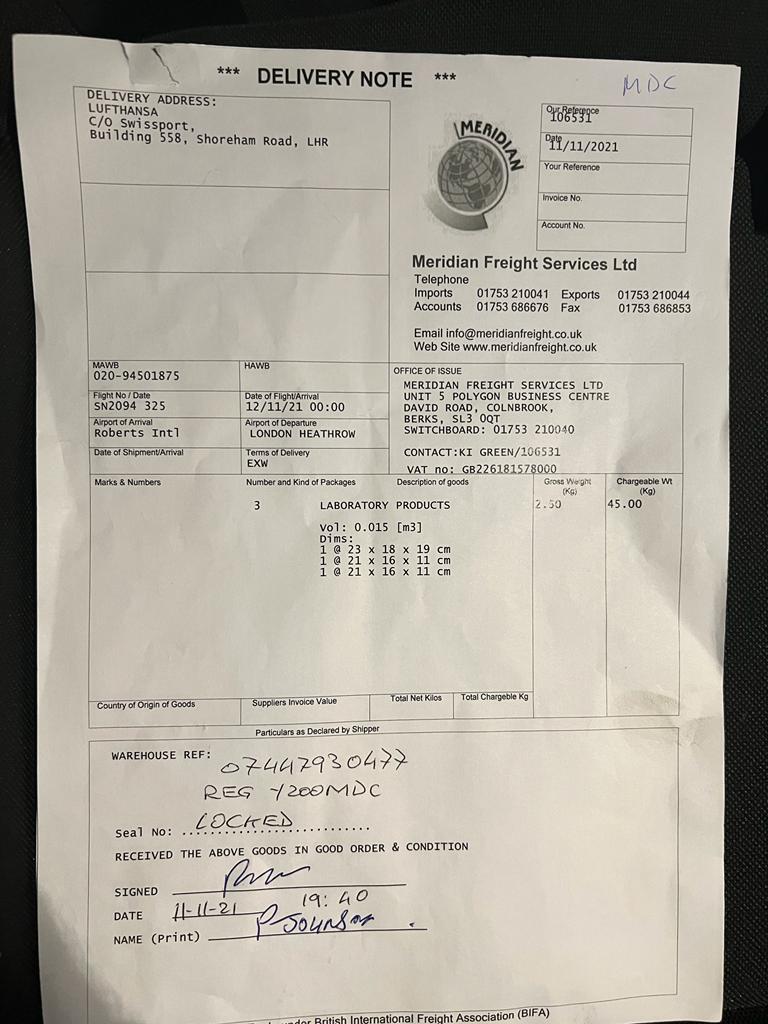 *** DELIVERY NOTE ***
MDC
DELIVERY ADDRESS:
LUFTHANSA
C/O Swissport,
Building 558, Shoreham Road, LHR
MERIDIAN
Our Reference
106531
Date
11/11/2021
Your Reference
Invoice No.
Account No.
Meridian Freight Services Ltd
Telephone
Imports 01753 210041 Exports 01753 210044
Accounts 01753 686676 Fax 01753 686853
Email info@meridianfreight.co.uk
Web Site www.meridianfreight.co.uk
MAWB
020-94501875
HAWB
Flight No / Date
SN2094 325
Date of Flight/Arrival
12/11/21 00:00
Airport of Arrival
Roberts Intl
Airport of Departure
LONDON HEATHROW
Date of Shipment/Arrival
Terms of Delivery
EXW
OFFICE OF ISSUE
MERIDIAN FREIGHT SERVICES LTD
UNIT 5 POLYGON BUSINESS CENTRE
DAVID ROAD, COLNBROOK,
BERKS, SL3 0QT
SWITCHBOARD: 01753 210040
CONTACT:KI GREEN/106531
VAT no: GB226181578000
Marks & Numbers
Number and Kind of Packages
Description of goods
Gross Weight
(Kg)
Chargeable Wt
(Kg)
3 LABORATORY PRODUCTS 2.50 45.00
Vol: 0.015 [m3]
Dims:
1 @ 23 x 18 x 19 cm
1 @ 21 x 16 x 11 cm
1 @ 21 x 16 x 11 cm
Country of Origin of Goods
Suppliers Invoice Value
Total Net Kilos
Total Chargeable Kg
Particulars as Declared by Shipper
WAREHOUSE REF: 07447930477
REG Y200MDC
Seal No: LOCKED
RECEIVED THE ABOVE GOODS IN GOOD ORDER & CONDITION
SIGNED
DATE 11-11-21 19:40
NAME (Print) P JOHNSON
under British International Freight Association (BIFA)